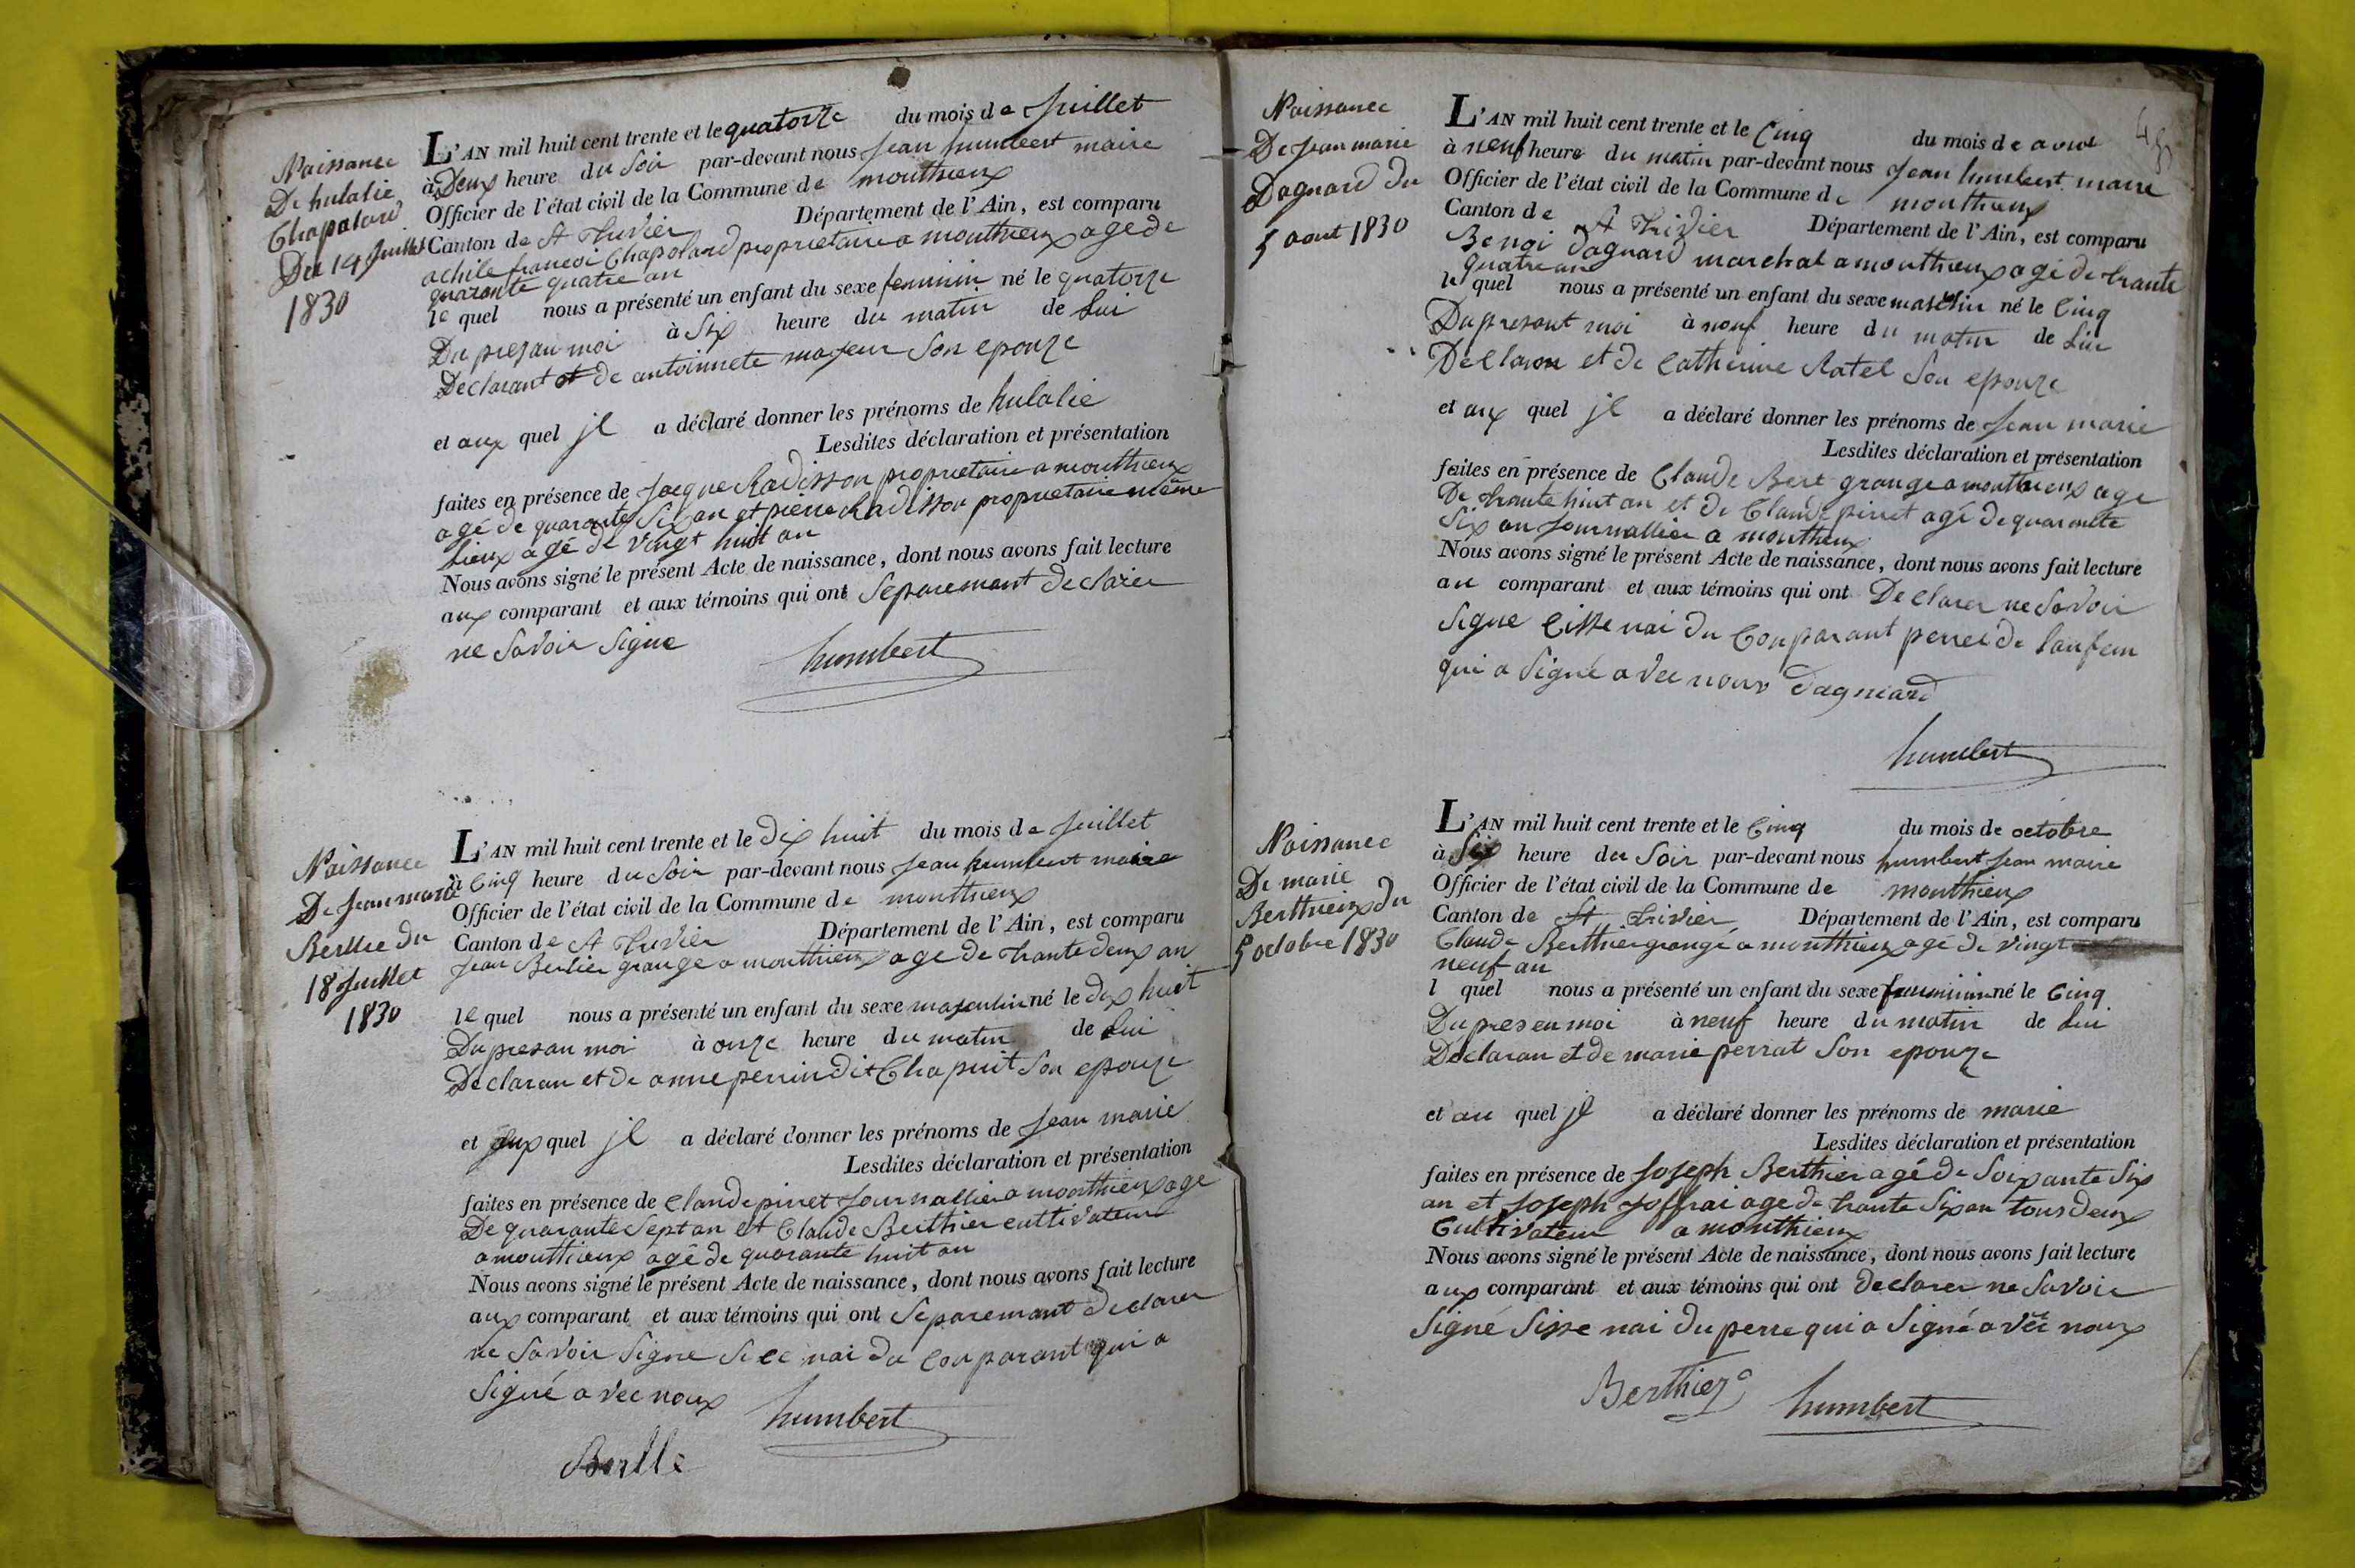 Naissance
De hulalie
Chapolard
Du 14 Juillet
1830
L'AN mil huit cent trente et le quatorze du mois de Juillet
à Deux heure du Soir par-devant nous Jean humbert maire
Officier de l'état civil de la Commune de monthieux
Canton de St Trivier Département de l'Ain, est comparu
achile francoi Chapolard proprietaire a monthieux age de
quarante quatre an
le quel nous a présenté un enfant du sexe feminin né le quatorze
Du presan moi à Six heure du matin de Lui
Declarant et de antoinnete majeur Son epouze
et aux quel jl a déclaré donner les prénoms de hulalie
Lesdites déclaration et présentation
faites en présence de Jacque Radisson proprietaire a monthieux
agé de quarante Six an et pierre Radisson proprietaire meme
Lieux agé de vingt huit an
Nous avons signé le présent Acte de naissance, dont nous avons fait lecture
aux comparant et aux témoins qui ont Separemant declarer
ne Savoir Signe
humbert
Naissance
De Jean marie
Berlie du
18 Juillet
1830
L'AN mil huit cent trente et le dix huit du mois de Juillet
à Cinq heure du Soir par-devant nous Jean humbert maire
Officier de l'état civil de la Commune de monthieux
Canton de St Trivier Département de l'Ain, est comparu
Jean Berlier grange a monthieux age de trante deux an
le quel nous a présenté un enfant du sexe masculin né le dix huit
Du presan moi à onze heure du matin de Lui
Declaran et de anne perrin dit Chapuit Son epouze
et aux quel jl a déclaré donner les prénoms de Jean marie
Lesdites déclaration et présentation
faites en présence de Claude pinet Journallier a monthieux age
De quarante Sept an et Claude Berthier cultivateur
a monthieux agé de quarante huit an
Nous avons signé le présent Acte de naissance, dont nous avons fait lecture
aux comparant et aux témoins qui ont Separemant declarer
ne Savoir Signe Si ce nai du Conparant qui a
Signé avec noux
humbert
Berlle
45
Naissance
De Jean marie
Dagnard Du
5 aout 1830
L'AN mil huit cent trente et le Cinq du mois de aout
à neuf heure du matin par-devant nous Jean humbert maire
Officier de l'état civil de la Commune de monthieux
Canton de St Trivier Département de l'Ain, est comparu
Benoi Dagnard marechal a monthieux agé de trante
quatre an
le quel nous a présenté un enfant du sexe maschin né le Cinq
Du presant moi à nouf heure du matin de Lui
Declaran et de Catherine Ratel Son epouze
et aux quel jl a déclaré donner les prénoms de Jean marie
Lesdites déclaration et présentation
faites en présence de Claude Bert grange a monthieux age
De trante huit an et de Claude pinet agé de quarante
Six an Journallier a monthieux
Nous avons signé le présent Acte de naissance, dont nous avons fait lecture
au comparant et aux témoins qui ont Declarer ne Savoir
Signe Cisse nai du Conparant perre de Lanfan
qui a Signé avec nous Dagniard
humbert
Naissance
De marie
Berthieux du
5 octobre 1830
L'AN mil huit cent trente et le Cinq du mois de octobre
à Six heure du Soir par-devant nous humbert Jean maire
Officier de l'état civil de la Commune de monthieux
Canton de St Trivier Département de l'Ain, est comparu
Claude Berthier grangé a monthieux agé de vingt
neuf an
l quel nous a présenté un enfant du sexe feminin né le Cinq
Du presen moi à neuf heure du matin de Lui
Declaran et de marie perrat Son epouze
et au quel jl a déclaré donner les prénoms de marie
Lesdites déclaration et présentation
faites en présence de Joseph Berthier agé de Soixante Six
an et Joseph Joffrai age de trante Six an tous deux
Cultivateur a monthieux
Nous avons signé le présent Acte de naissance, dont nous avons fait lecture
aux comparant et aux témoins qui ont declarer ne Savoir
Signé Sisse nai du perre qui a Signé avec noux
Berthier
humbert